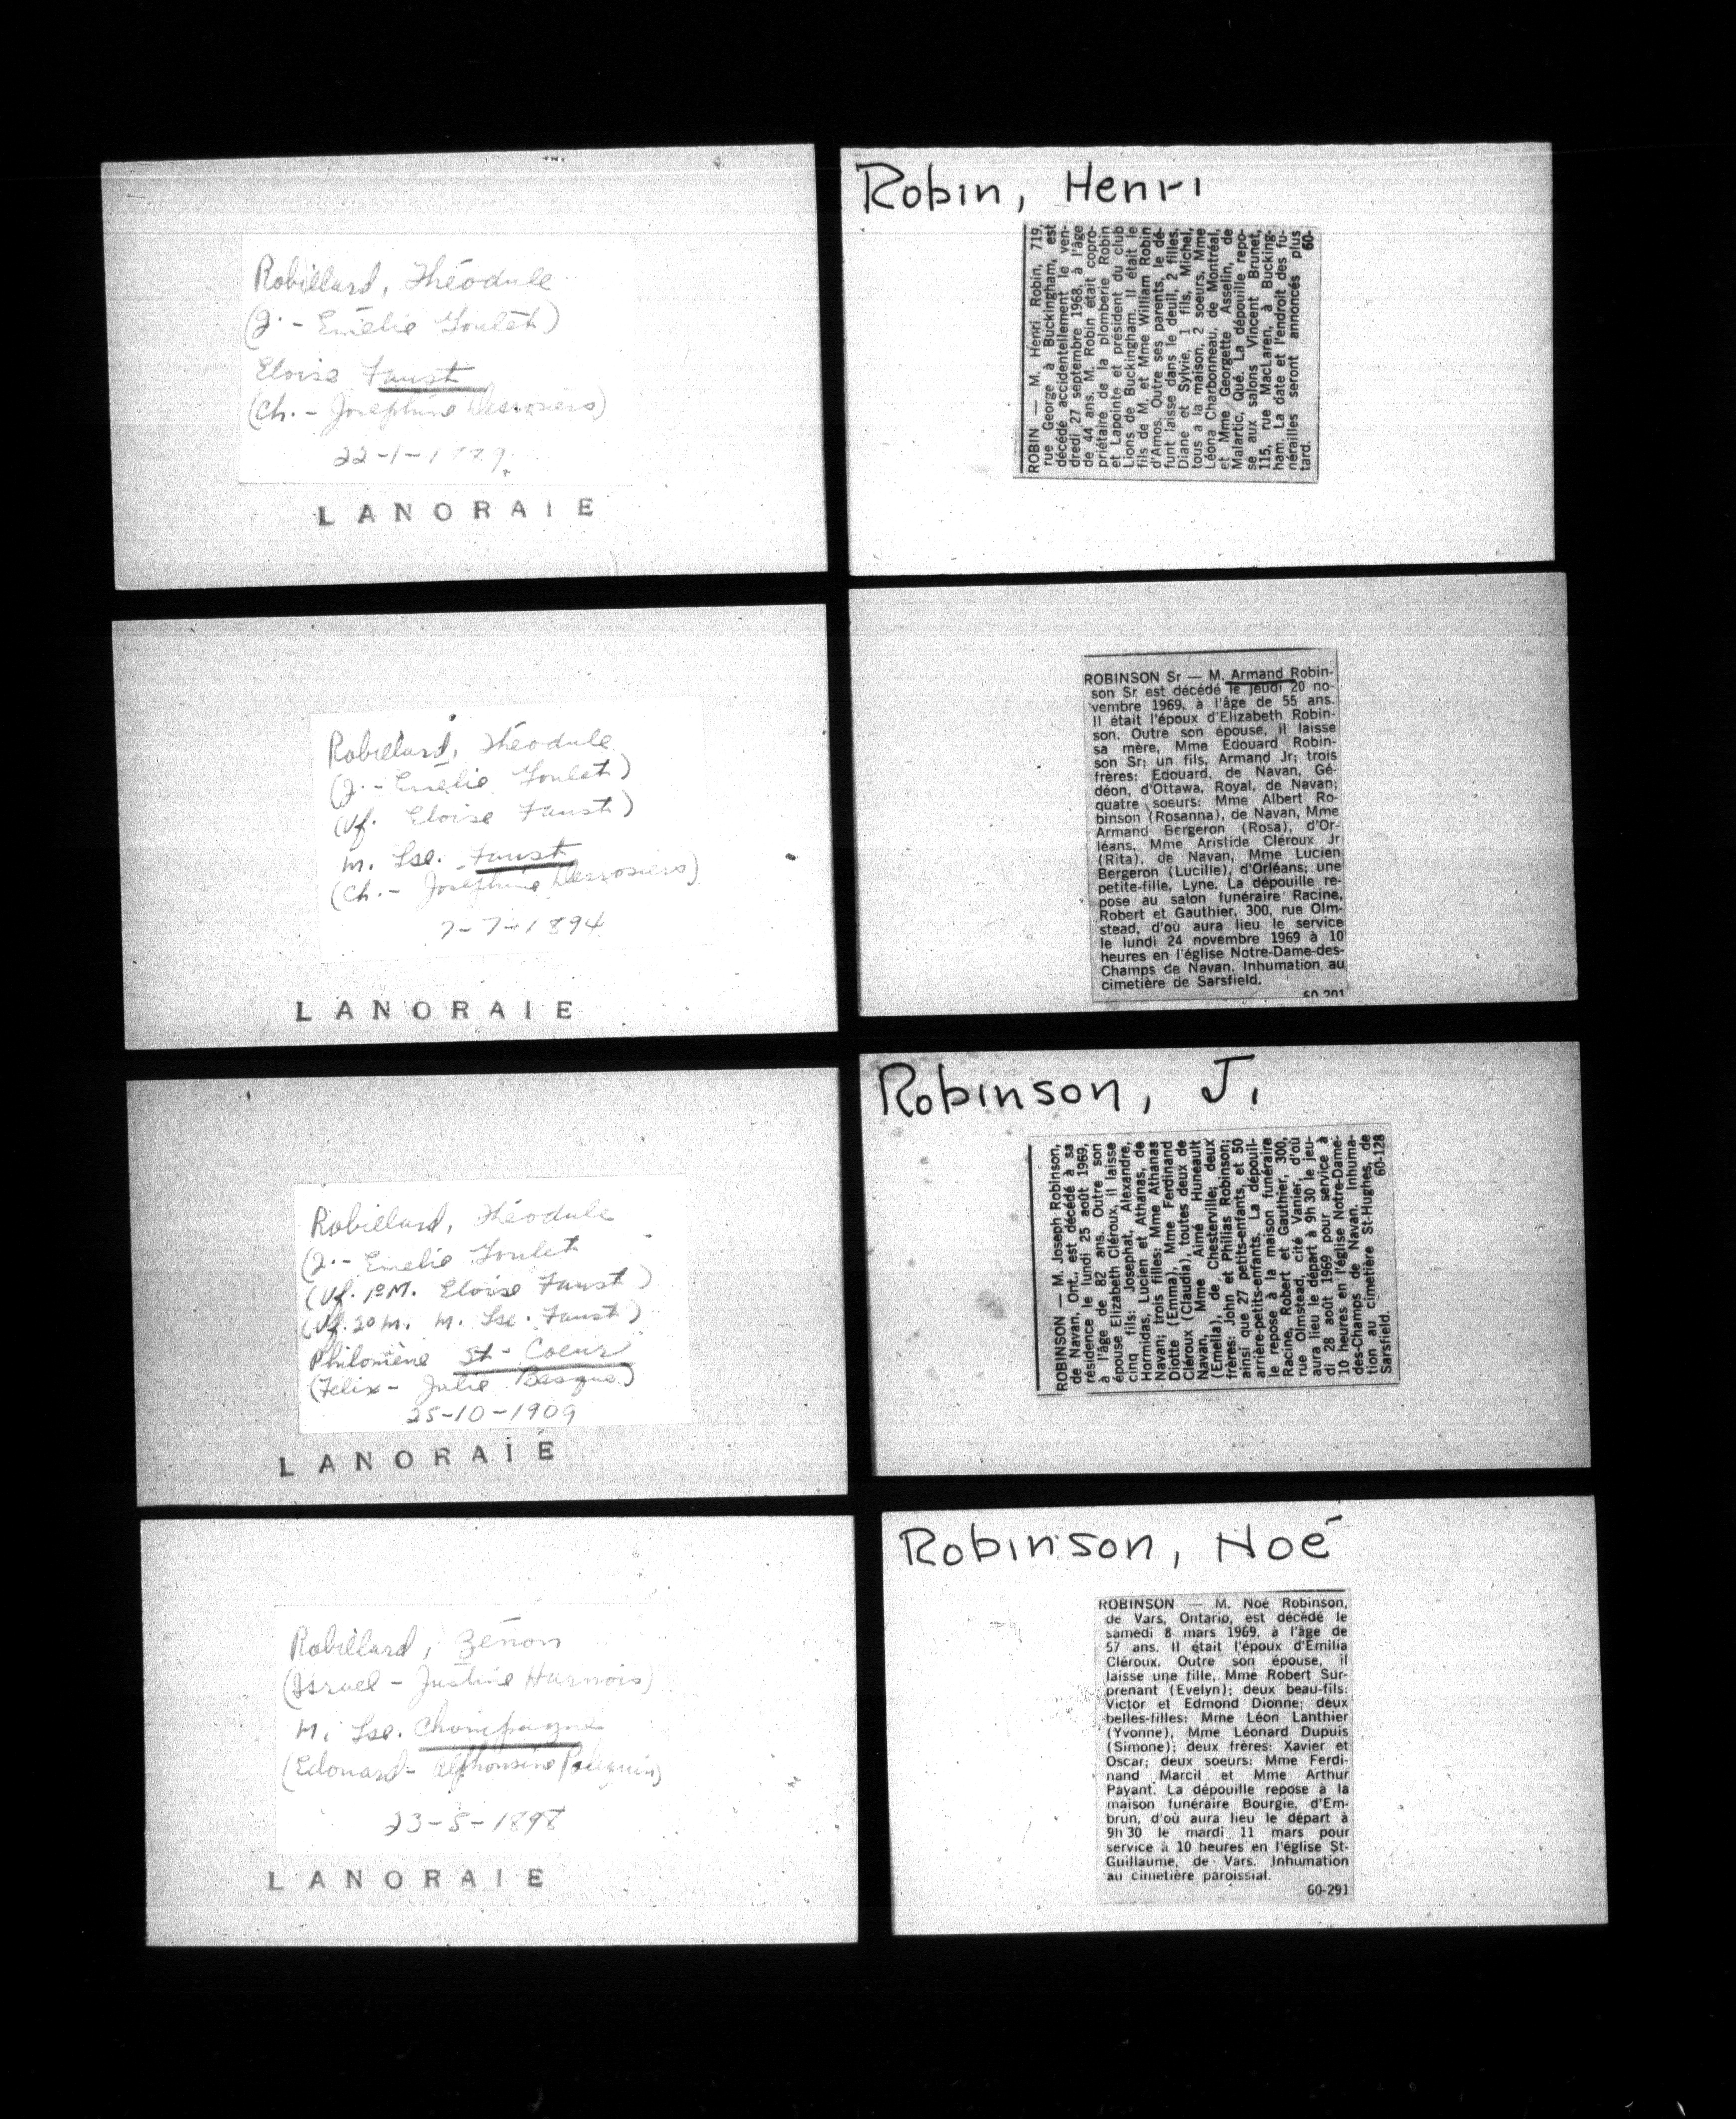 Robillard, Théodule
(J. - Emélie Goulet)
Eloise Faust
(Ch. - Josephine Desrosiers)
22-1-1889
LANORAIE
Robillard, Théodule
(J. - Emélie Goulet)
(Vf. Eloise Faust)
m. Lse. Faust
(Ch. - Josephine Desrosiers)
7-7-1894
LANORAIE
Robillard, Théodule
(J. - Emélie Goulet
(Vf. 1o M. Eloise Faust)
(Vf. 2o m. m. Lse. Faust)
Philomène St-Coeur
(Félix - Julie Basque)
25-10-1909
LANORAIE
Robillard, Zénon
(Israel - Justine Harnois)
M. Lse. Champagne
(Edouard - Alphonsine Pelerin)
23-5-1898
LANORAIE
Robin, Henri
ROBIN — M. Henri Robin, 719,
rue George à Buckingham, est
décédé accidentellement le ven-
dredi 27 septembre 1968, à l'âge
de 44 ans. M. Robin était copro-
priétaire de la plomberie Robin
et Lapointe et président du club
Lions de Buckingham. Il était le
fils de M. et Mme William Robin
d'Amos. Outre ses parents, le dé-
funt laisse dans le deuil, 2 filles,
Diane et Sylvie, 1 fils, Michel,
tous à la maison, 2 soeurs, Mme
Léona Charbonneau, de Montréal,
et Mme Georgette Asselin, de
Malartic, Qué. La dépouille repo-
se aux salons Vincent Brunet,
115, rue MacLaren, à Bucking-
ham. La date et l'endroit des fu-
nérailles seront annoncés plus
tard. 60-
ROBINSON Sr — M. Armand Robin-
son Sr est décédé le jeudi 20 no-
vembre 1969, à l'âge de 55 ans.
Il était l'époux d'Elizabeth Robin-
son. Outre son épouse, il laisse
sa mère, Mme Edouard Robin-
son Sr; un fils, Armand Jr; trois
frères: Edouard, de Navan, Gé-
déon, d'Ottawa, Royal, de Navan;
quatre soeurs: Mme Albert Ro-
binson (Rosanna), de Navan, Mme
Armand Bergeron (Rosa), d'Or-
léans, Mme Aristide Cléroux Jr
(Rita), de Navan, Mme Lucien
Bergeron (Lucille), d'Orléans; une
petite-fille, Lyne. La dépouille re-
pose au salon funéraire Racine,
Robert et Gauthier, 300, rue Olm-
stead, d'où aura lieu le service
le lundi 24 novembre 1969 à 10
heures en l'église Notre-Dame-des-
Champs de Navan. Inhumation au
cimetière de Sarsfield.
60-201
Robinson, J.
ROBINSON — M. Joseph Robinson,
de Navan, Ont., est décédé à sa
résidence le lundi 25 août 1969,
à l'âge de 82 ans. Outre son
épouse Elizabeth Cléroux, il laisse
cinq fils: Josephat, Alexandre,
Hormidas, Lucien et Athanas, de
Navan; trois filles: Mme Athanas
Diotte (Emma), Mme Ferdinand
Cléroux (Claudia), toutes deux de
Navan, Mme Aimé Huneault
(Emelia), de Chesterville; deux
frères: John et Philias Robinson;
ainsi que 27 petits-enfants, et 50
arrière-petits-enfants. La dépouil-
le repose à la maison funéraire
Racine, Robert et Gauthier, 300,
rue Olmstead, cité Vanier, d'où
aura lieu le départ à 9h 30 le jeu-
di 28 août 1969 pour service à
10 heures en l'église Notre-Dame-
des-Champs de Navan. Inhuma-
tion au cimetière St-Hughes, de
Sarsfield. 60-128
Robinson, Noé
ROBINSON — M. Noé Robinson,
de Vars, Ontario, est décédé le
samedi 8 mars 1969, à l'âge de
57 ans. Il était l'époux d'Emilia
Cléroux. Outre son épouse, il
laisse une fille, Mme Robert Sur-
prenant (Evelyn); deux beau-fils:
Victor et Edmond Dionne; deux
belles-filles: Mme Léon Lanthier
(Yvonne), Mme Léonard Dupuis
(Simone); deux frères: Xavier et
Oscar; deux soeurs: Mme Ferdi-
nand Marcil et Mme Arthur
Payant. La dépouille repose à la
maison funéraire Bourgie, d'Em-
brun, d'où aura lieu le départ à
9h 30 le mardi 11 mars pour
service à 10 heures en l'église St-
Guillaume, de Vars. Inhumation
au cimetière paroissial.
60-291